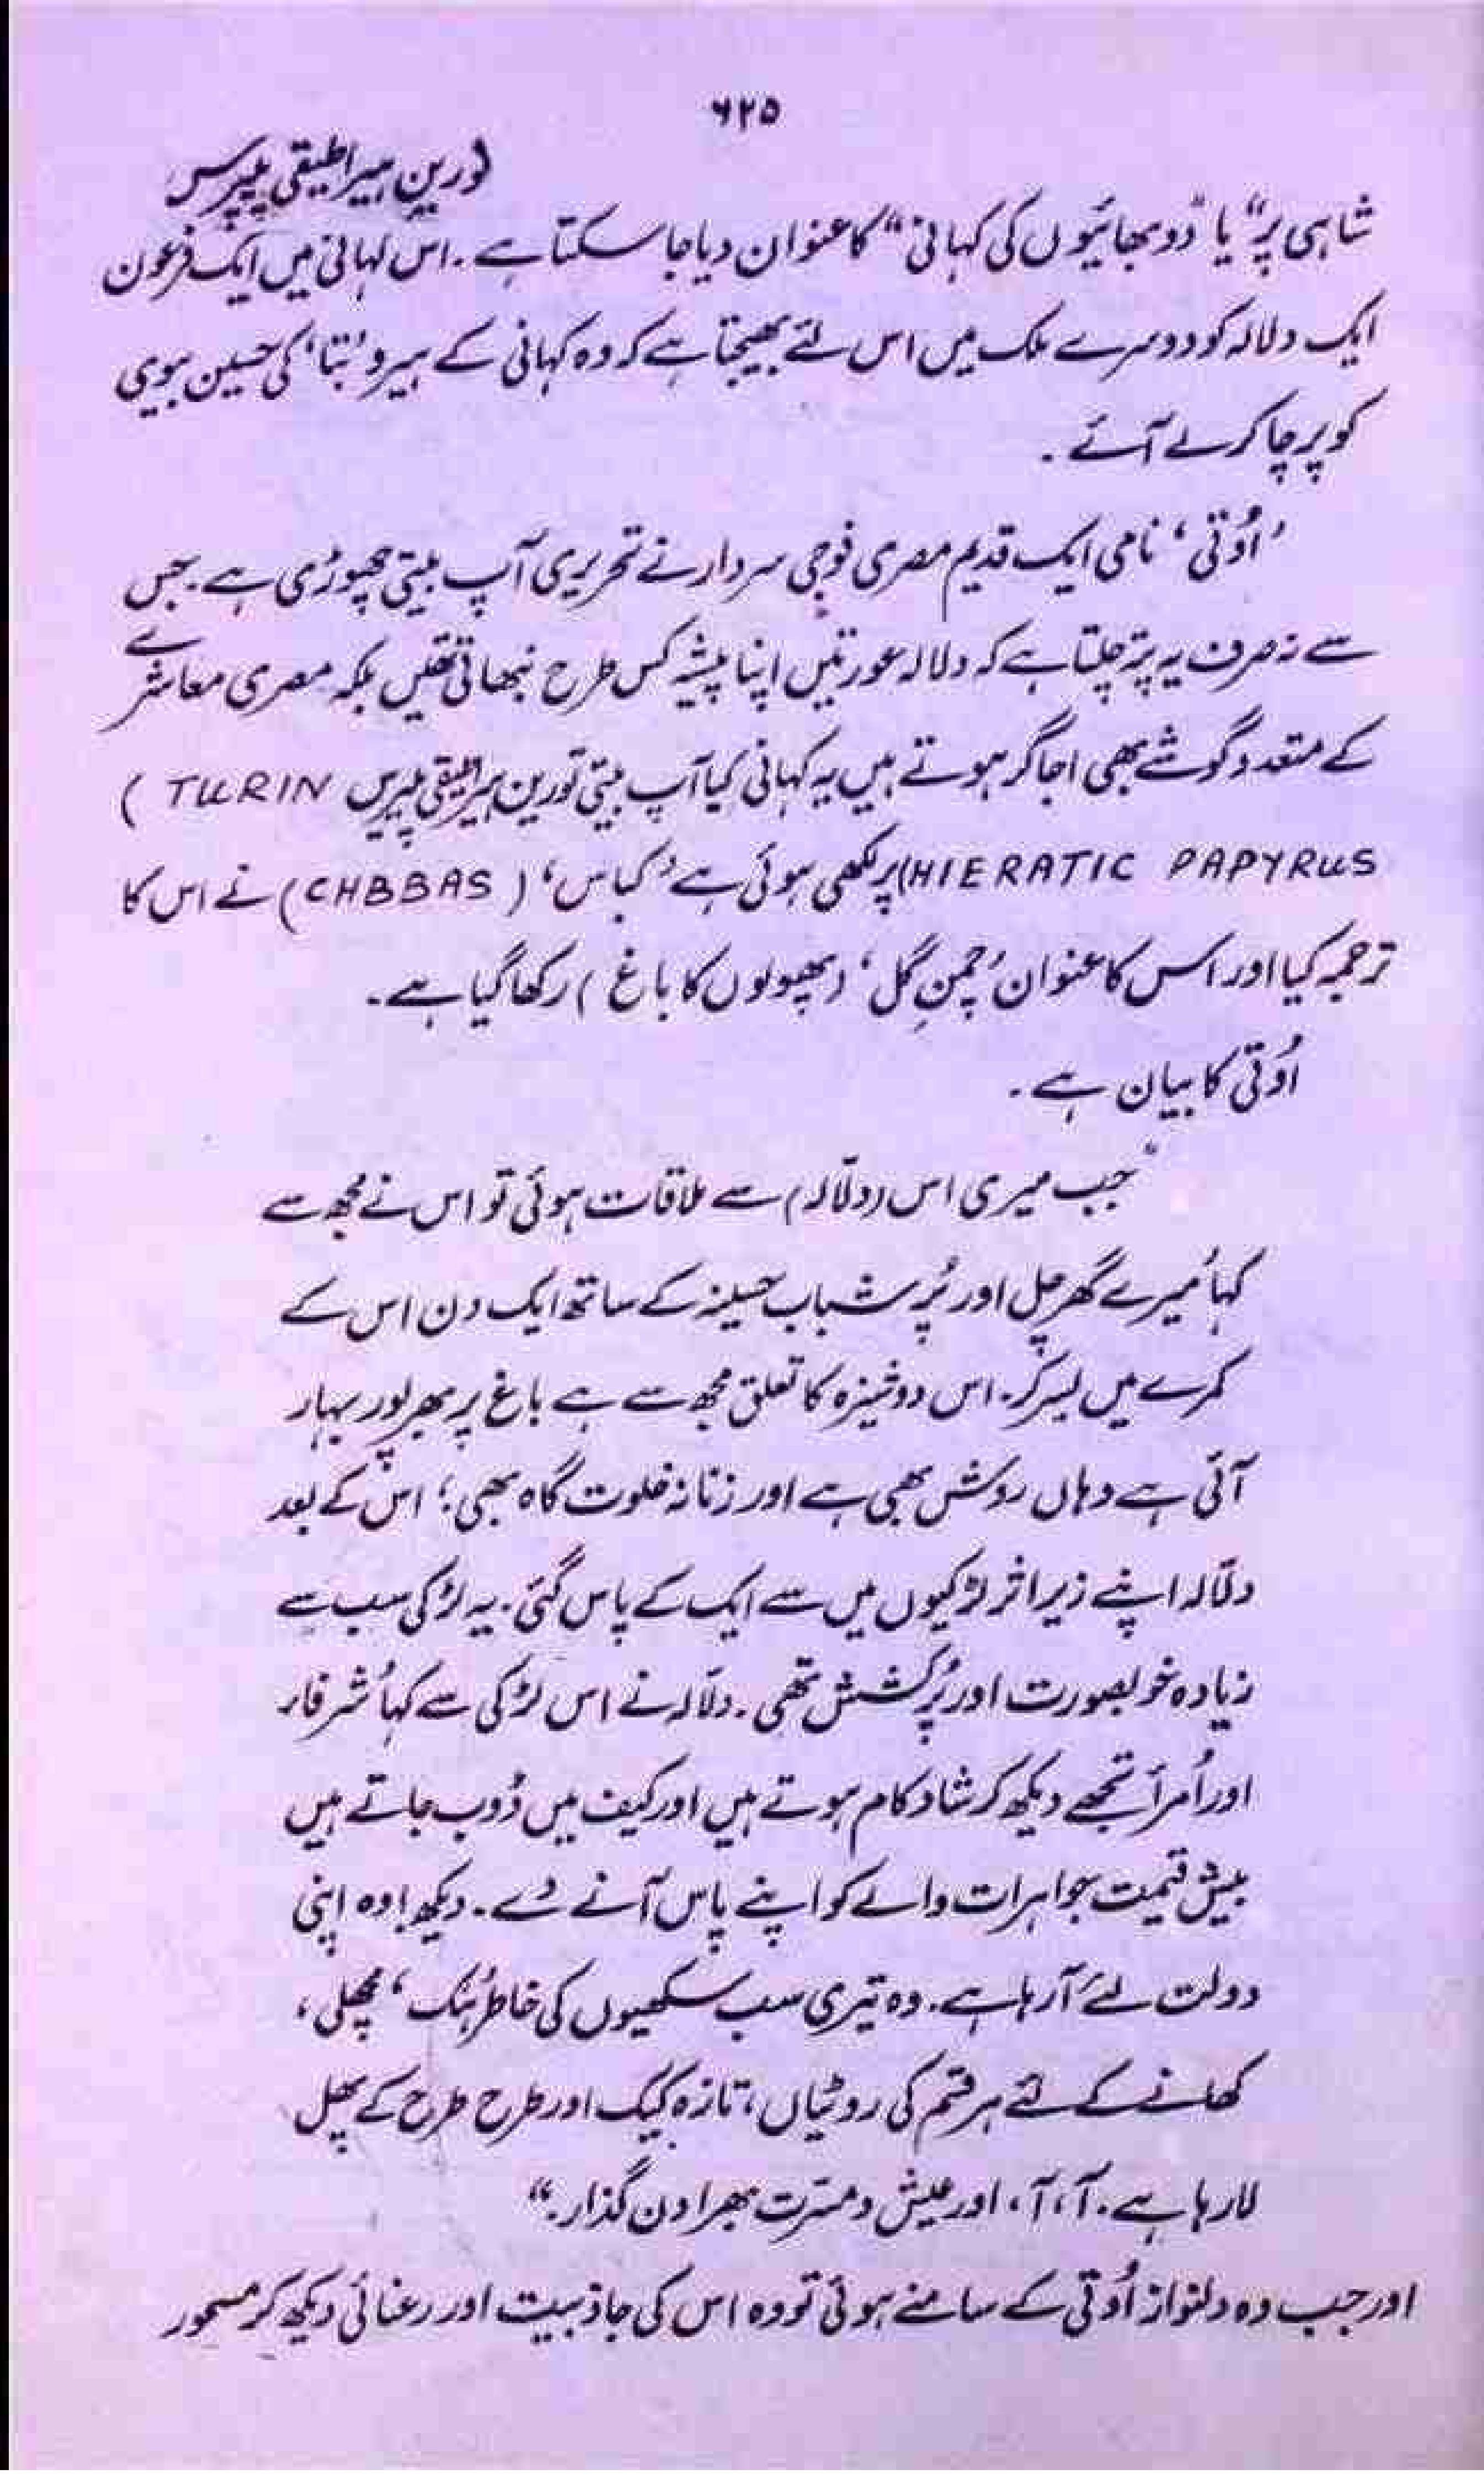 ۶۲۵
(ورین ہیراطیقی پیپرس
شاہی پر" یا "دو بھائیوں کی کہانی" کا عنوان دیا جا سکتا ہے۔ اس کہانی میں ایک فرعون
ایک دلالہ کو دوسرے ملک میں اس لئے بھیجتا ہے کہ وہ کہانی کے ہیرو 'بتا' کی حسین بیوی
کو پرچا کر لے آئے۔
'اُوتی' نامی ایک قدیم مصری فوجی سردار نے تحریری آپ بیتی چھوڑی ہے۔ جس
سے نہ صرف یہ پتہ چلتا ہے کہ دلالہ عورتیں اپنا پیشہ کس طرح نبھاتی تھیں بلکہ مصری معاشرے
کے متعدد گوشے بھی اجاگر ہوتے ہیں یہ کہانی کیا آپ بیتی تورین ہیراطیقی پیپرس (TURIN
HIERATIC PAPYRUS) پر لکھی ہوئی ہے 'کباس' (CHBBAS) نے اس کا
ترجمہ کیا اور اس کا عنوان 'چمنِ گل' (پھولوں کا باغ) رکھا گیا ہے۔
اُوتی کا بیان ہے۔
"جب میری اس (دلّالہ) سے ملاقات ہوئی تو اس نے مجھ سے
کہا 'میرے گھر چل اور پُر شباب حسینہ کے ساتھ ایک دن اس کے
کمرے میں بسر کر۔ اس دوشیزہ کا تعلق مجھ سے ہے باغ پر بھرپور بہار
آئی ہے وہاں روش بھی ہے اور زنانہ خلوت گاہ بھی؛' اس کے بعد
دلّالہ اپنے زیر اثر لڑکیوں میں سے ایک کے پاس گئی۔ یہ لڑکی سب سے
زیادہ خوبصورت اور پُرکشش تھی۔ دلّالہ نے اس لڑکی سے کہا 'شرفاء
اور اُمرأ تجھے دیکھ کر شاد کام ہوتے ہیں اور کیف میں ڈوب جاتے ہیں
بیش قیمت جواہرات والے کو اپنے پاس آنے دے۔ دیکھ! وہ اپنی
دولت لئے آ رہا ہے۔ وہ تیری سب سکھیوں کی خاطر ہنگ، مچھلی،
کھانے کے لئے ہر قسم کی روٹیاں، تازہ کیک اور طرح طرح کے پھل
لا رہا ہے۔ آ، آ، اور عیش و مسّرت بھرا دن گذار۔"
اور جب وہ دلنواز اُوتی کے سامنے ہوئی تو وہ اس کی جاذبیت اور رعنائی دیکھ کر مسحور